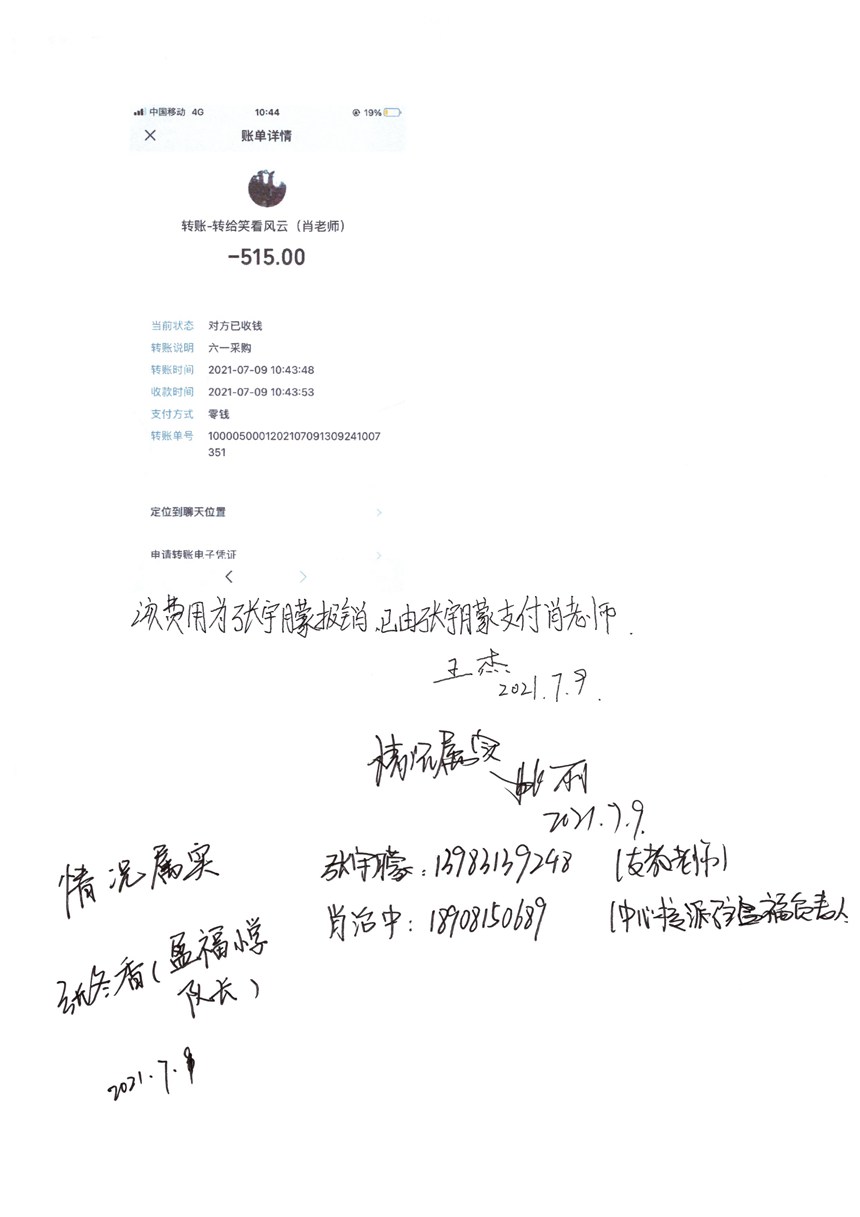 中国移动 4G 10:44 19%
账单详情
转账-转给笑看风云（肖老师）
-515.00
当前状态 对方已收钱
转账说明 六一采购
转账时间 2021-07-09 10:43:48
收款时间 2021-07-09 10:43:53
支付方式 零钱
转账单号 1000050001202107091309241007
351
定位到聊天位置
申请转账电子凭证
该费用为张宇朦报销，已由张宇朦支付肖老师.
王杰
2021.7.9.
情况属实
2021.7.9.
张宇朦：13983139248 （支教老师）
肖治中：18908150689 （中心校派驻盈福负责人
情况属实
张冬香（盈福小学
队长）
2021.7.9